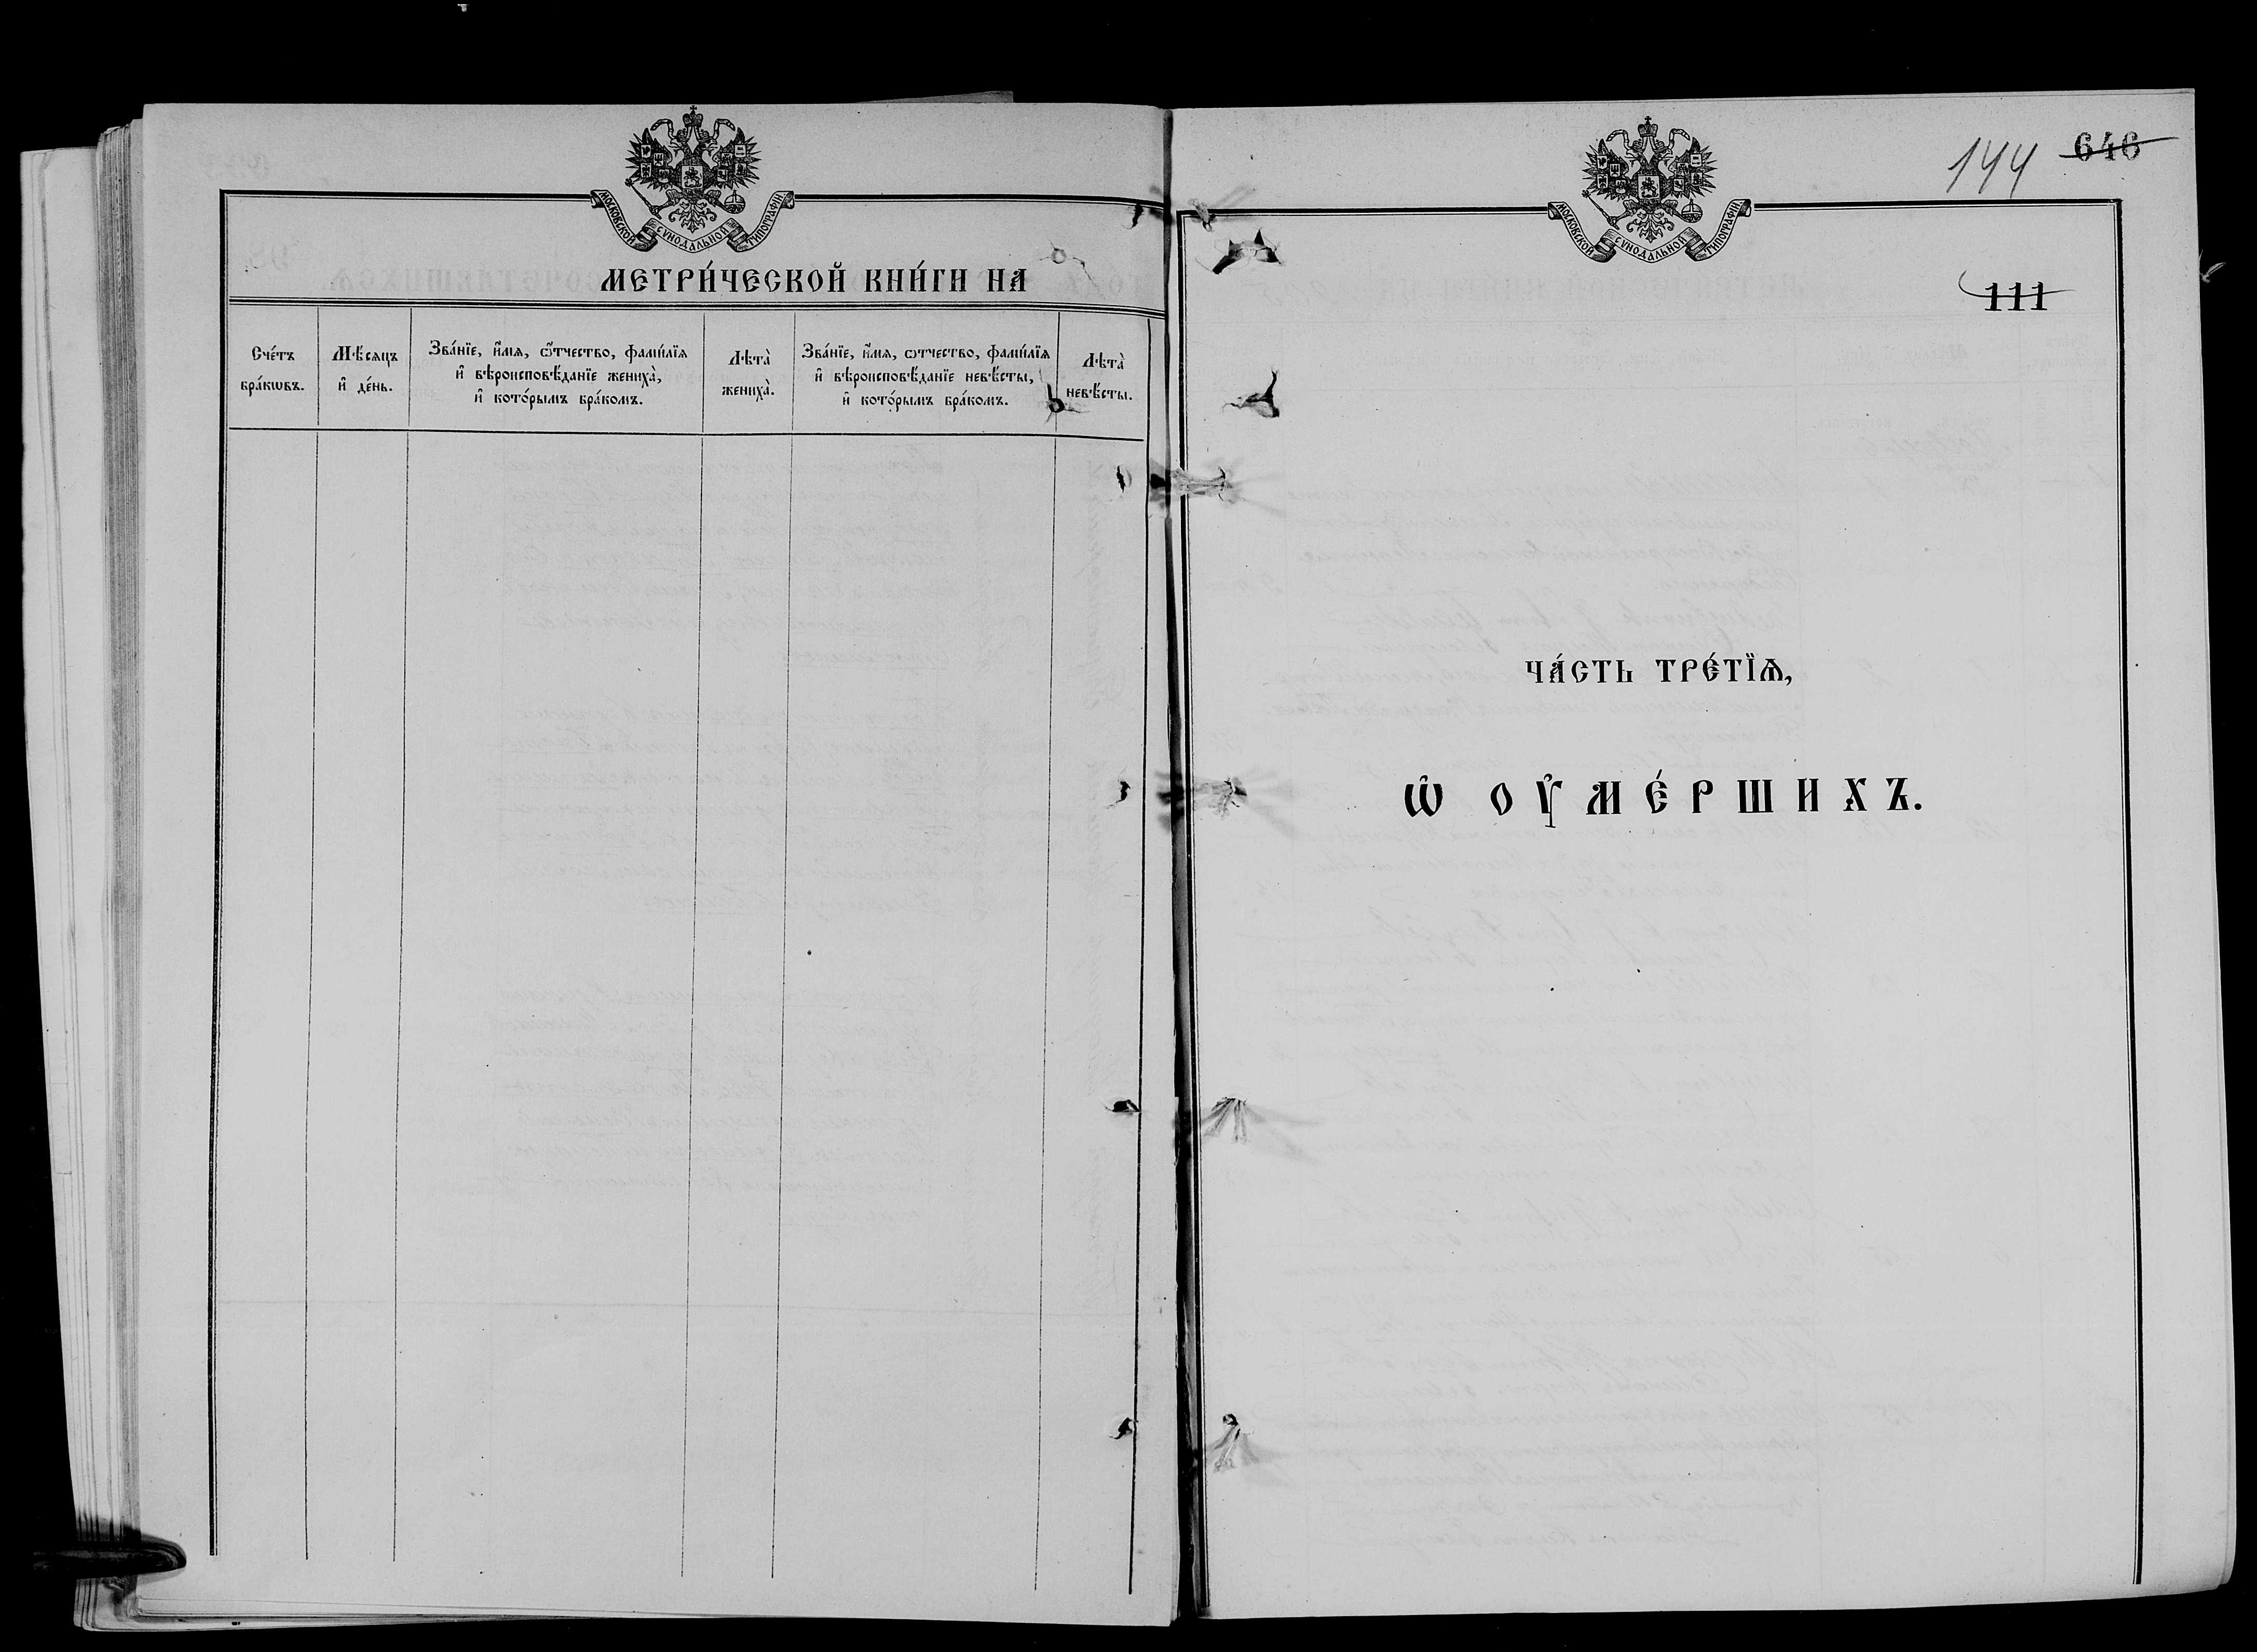 МОСКОВСКОЙ СѴНОДАЛЬНОЙ ТИПОГРАФІИ
МЕТРИ́ЧЕСКОЙ КНИ́ГИ НА
Сче́тъ
бра́кѡвъ.
Мѣ́сяцъ
и҆ де́нь.
Зва́нїе, и҆́мѧ, ѻ҆́тчество, фамилїѧ
и҆ вѣроисповѣ́данїе жениха̀,
и҆ кото́рымъ бра́комъ.
Лѣта̀
жениха̀.
Зва́нїе, и҆́мѧ, ѻ҆тчество, фами́лїѧ
и҆ вѣроисповѣ́данїе невѣ́сты,
и҆ кото́рымъ бра́комъ.
Лѣта̀
невѣ́сты.
144 646
МОСКОВСКОЙ СѴНОДАЛЬНОЙ ТИПОГРАФІИ
111
ЧА́СТЬ ТРЕ́ТЇѦ,
Ѡ҆ ОУ҆МЕ́РШИХЪ.